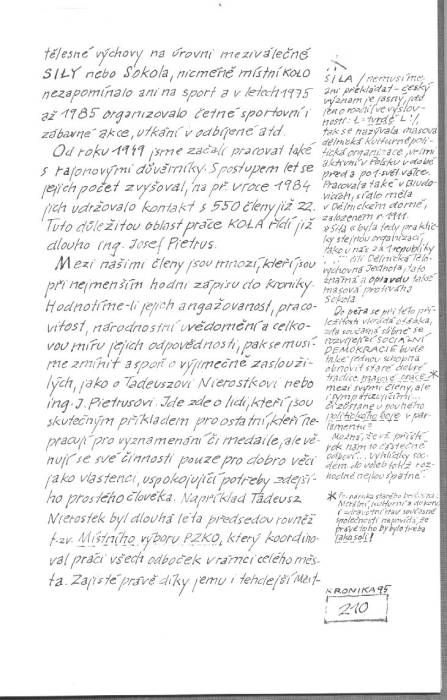 tělesné výchovy na úrovni meziválečné
SIŁY nebo Sokola, nicméně místní KOŁO
nezapomínalo ani na sport a v letech 1975
až 1985 organizovalo četné sportovní i
zábavné akce, utkání v odbíjené atd.
Od roku 1949 jsme začali pracovat také
s rajonovými důvěrníky. S postupem let se
jejich počet zvyšoval, na př. v roce 1984
jich udržovalo kontakt s 550 členy již 22.
Tuto důležitou oblast práce KOŁA řídí již
dlouho ing. Josef Pietrus.
Mezi našimi členy jsou mnozí, kteří jsou
při nejmenším hodni zápisu do kroniky.
Hodnotíme-li jejich angažovanost, praco-
vitost, národnostní uvědomění a celko-
vou míru jejich odpovědnosti, pak se musí-
me zmínit aspoň o výjimečně zaslouži-
lých, jako o Tadeuszovi Nierostkovi nebo
ing. J. Pietrusovi. Jde zde o lidi, kteří jsou
skutečným příkladem pro ostatní, kteří ne-
pracují pro vyznamenání či medaile, ale vě-
nují se své činnosti pouze pro dobro věci
jako vlastenci, uspokojující potřeby zdejší-
ho prostého člověka. Například Tadeusz
Nierostek byl dlouhá léta předsedou rovněž
t.zv. Místního výboru PZKO, který koordino-
val práci všech odboček v rámci celého měs-
ta. Zajisté právě díky jemu i tehdejší Míst-
SIŁA / nemusíme
ani překládat - český
význam je jasný, jde
jen o rozdíl ve výslov-
nosti: Ł - tvrdé L!/,
tak se nazývala masová
dělnická kulturně poli-
tická organizace, velmi
aktivní v Polsku v době
před a po 1. svět. válce.
Pracovala také v Bludo-
vicích, sídlo měla
v Dělnickém domě,
založeném r. 1911.
Siła byla tedy praktic-
ky stejnou organizací,
jako u nás za 1. republiky
čili Dělnická tělo-
výchovná Jednota, tato
známá a opravdu také
masová protiváha
Sokola!
Do pera se při této pří-
ležitosti vkrádá otázka,
zda současná slibně se
rozvíjející SOCIÁLNÍ
DEMOKRACIE bude
také jednou schopna
obnovit staré dobré
tradice masové práce *
mezi svými členy, ale
i sympatizujícími...
či zůstane u pouhého
politického boje v par-
lamentu?
Možná, že už příští
rok nám to částečně
odpoví... Vyhlídky soc.
dem. do voleb totiž roz-
hodně nejsou špatné.
* Pozn. 
Morální, kulturní a dokonce
i zdravotní stav současné
společnosti napovídá, že
právě toho by bylo třeba
jako soli!
KRONIKA 95
210